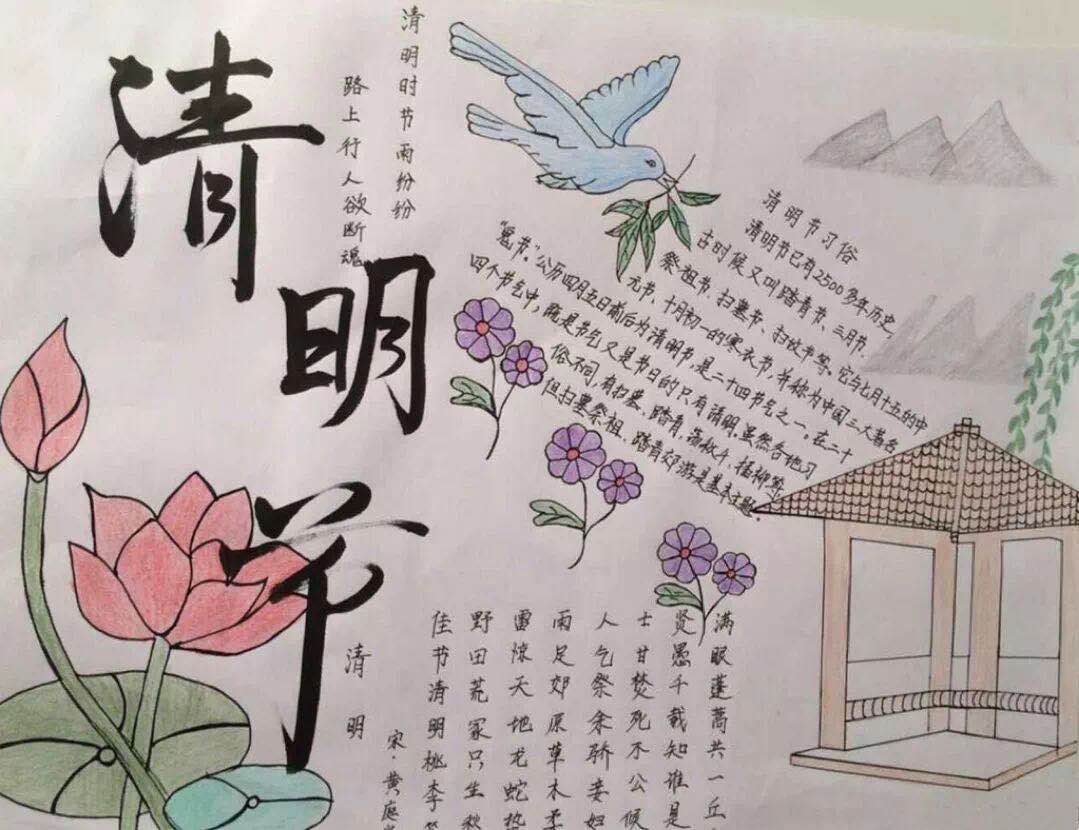 清明节
清明时节雨纷纷
路上行人欲断魂
清明节习俗
清明节已有2500多年历史,
古时候又叫踏青节、三月节、
祭祖节、扫墓节、扫坟节等。它与七月十五的中
元节、十月初一的寒衣节,并称为中国三大著名
"鬼节"。公历四月五日前后为清明节,是二十四节气之一。在二十
四个节气中,既是节气又是节日的只有清明。虽然各地习
俗不同,有扫墓、踏青、荡秋千、插柳等,
但扫墓祭祖、踏青郊游是基本主题。
清明
宋·黄庭
佳节清明桃李
野田荒冢只生
雷惊天地龙蛇
雨足郊原草木柔
人乞祭余骄妾妇
士甘焚死不公候
贤愚千载知谁是
满眼蓬蒿共一丘